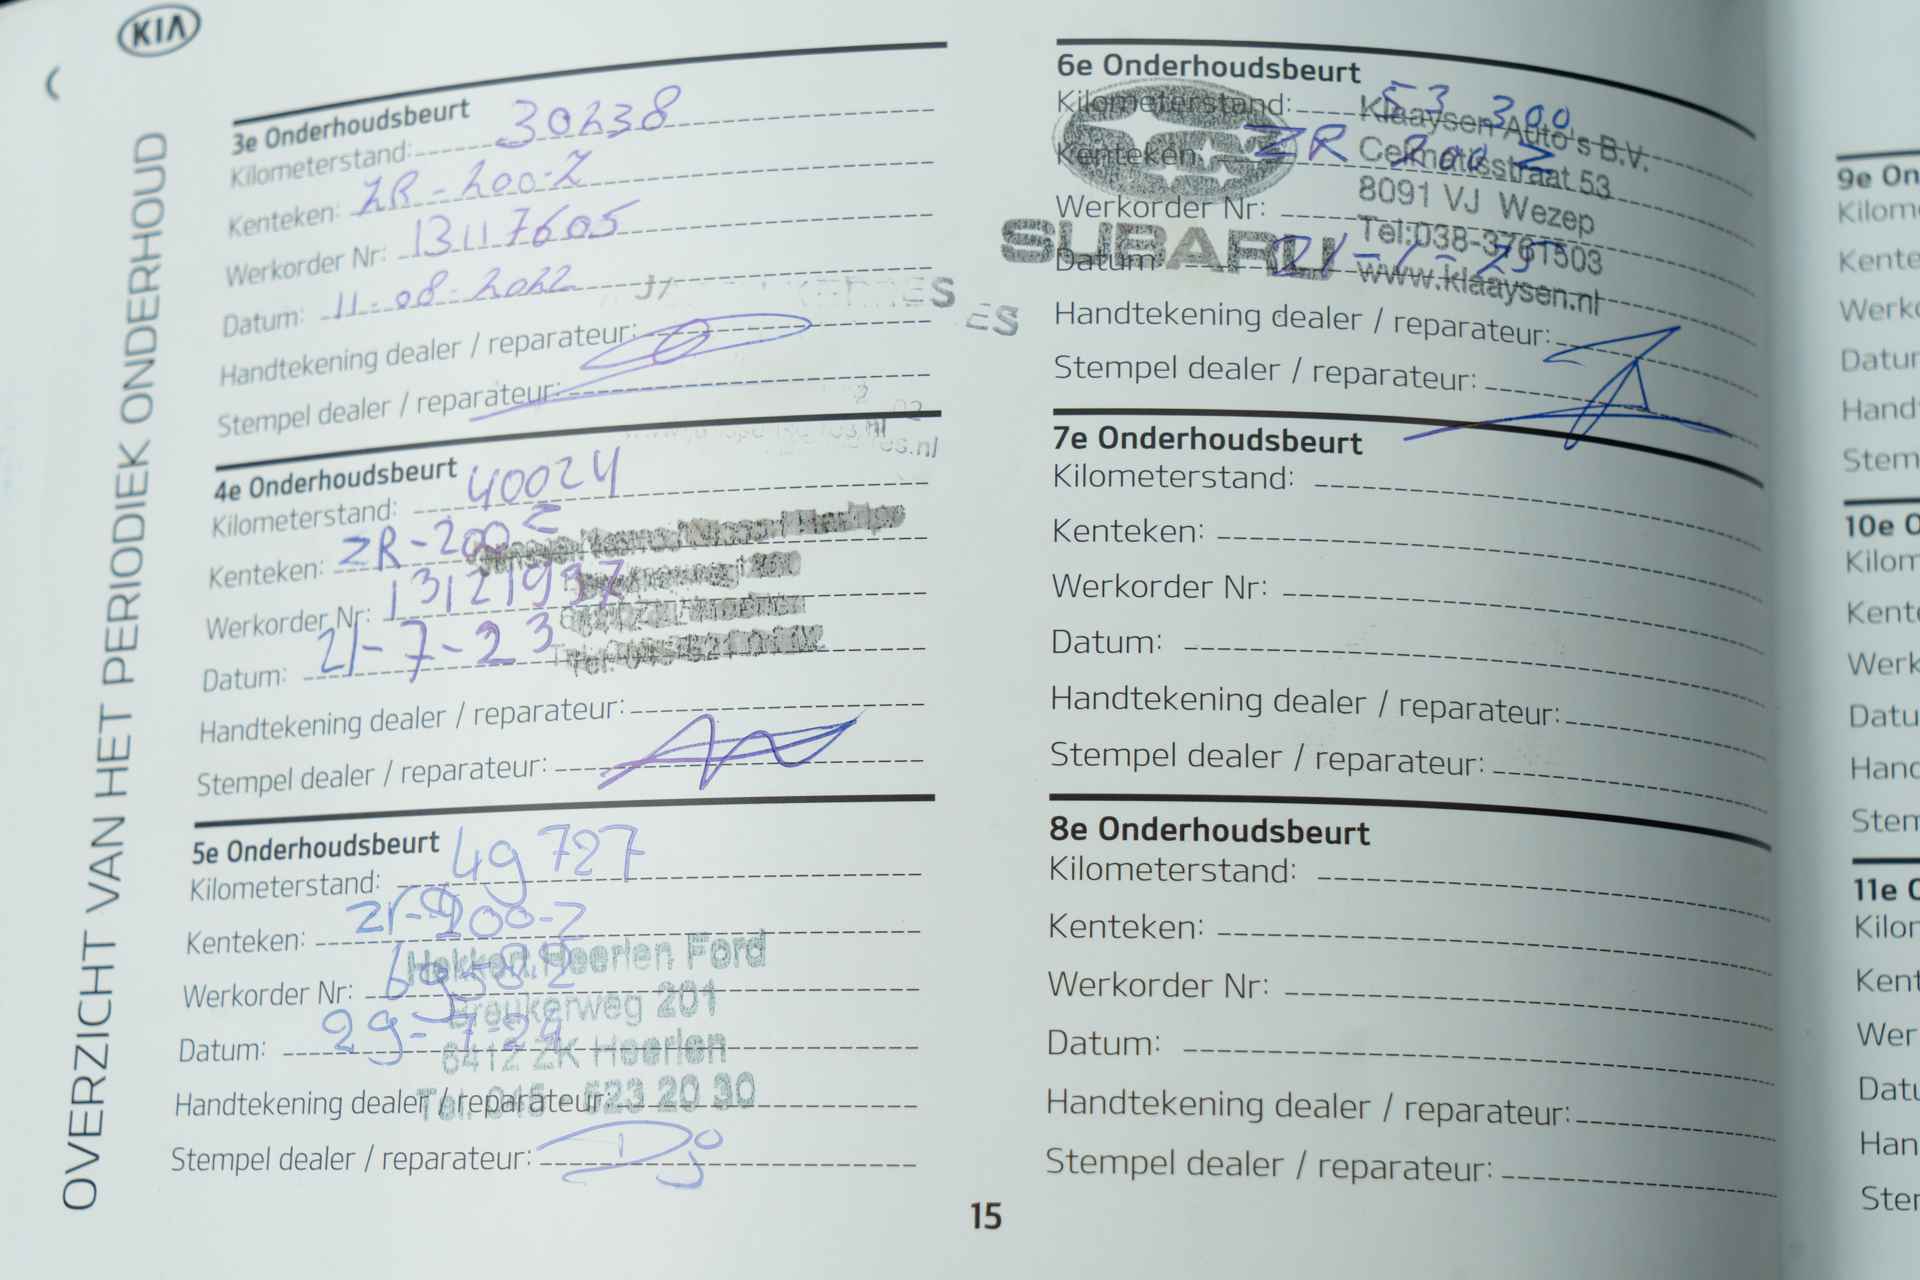 KIA
OVERZICHT VAN HET PERIODIEK ONDERHOUD
3e Onderhoudsbeurt
Kilometerstand: 30238
Kenteken: ZR-200-Z
Werkorder Nr: 13117605
Datum: 11-08-2022
Handtekening dealer / reparateur:
Stempel dealer / reparateur:
4e Onderhoudsbeurt
Kilometerstand: 40024
Kenteken: ZR-200 Z
Werkorder Nr: 13121997
Datum: 21-7-23
Handtekening dealer / reparateur:
Stempel dealer / reparateur:
5e Onderhoudsbeurt
Kilometerstand: 49727
Kenteken: Zr-200-Z
Werkorder Nr:
Datum: 29-7-24
Handtekening dealer / reparateur:
Stempel dealer / reparateur:
Hekkert Heerlen Ford
Breukerweg 201
6412 ZK Heerlen
Tel. 045 - 523 20 30
6e Onderhoudsbeurt
Kilometerstand: 53 300
Kenteken: ZR 200 Z
Werkorder Nr:
Datum: 21-1-25
Handtekening dealer / reparateur:
Stempel dealer / reparateur:
SUBARU
Klaaysen Auto's B.V.
53
8091 VJ Wezep
Tel:038-3761503
www.klaaysen.nl
7e Onderhoudsbeurt
Kilometerstand:
Kenteken:
Werkorder Nr:
Datum:
Handtekening dealer / reparateur:
Stempel dealer / reparateur:
8e Onderhoudsbeurt
Kilometerstand:
Kenteken:
Werkorder Nr:
Datum:
Handtekening dealer / reparateur:
Stempel dealer / reparateur:
15
9e On
Kilom
Kente
Werko
Datum
Handt
Stem
10e O
Kilom
Kente
Werk
Datu
Hand
Stem
11e O
Kilor
Kent
Wer
Datu
Han
Ster